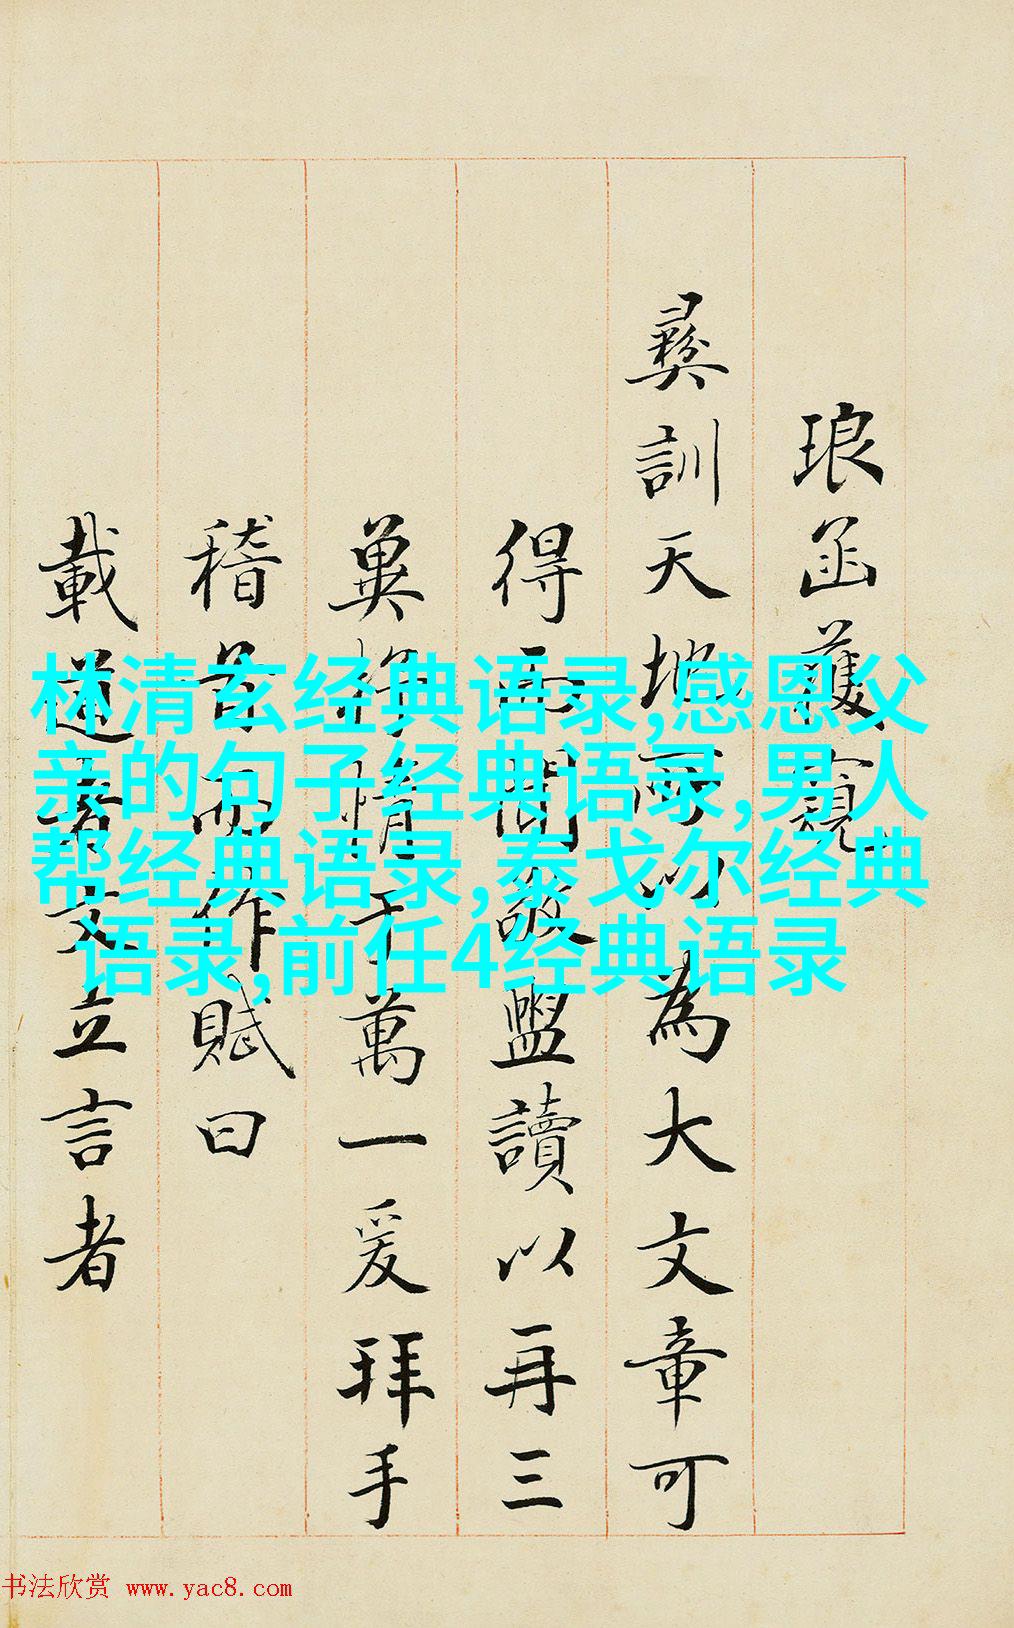 琅函獲窺
彛訓天地所以為大文章可
得而聞敬盥讀以再三
冀抒情于萬一爰拜手
稽首而作賦曰
載道者文立言者
林清玄经典语录,感恩父
亲的句子经典语录,男人
帮经典语录,泰戈尔经典
语录,前任4经典语录
书法欣赏 www.yac8.com